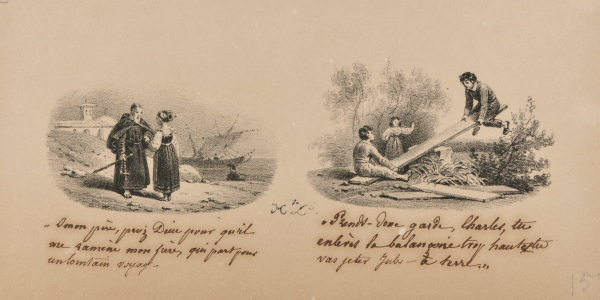 „ O mon père, priez Dieu pour qu'il
me ramène mon frère, qui part pour
un lointain voyage „
„ Prends-donc garde, Charles, tu
enlèves la balançoire trop haut et tu
vas jeter Jules - à terre. „
15